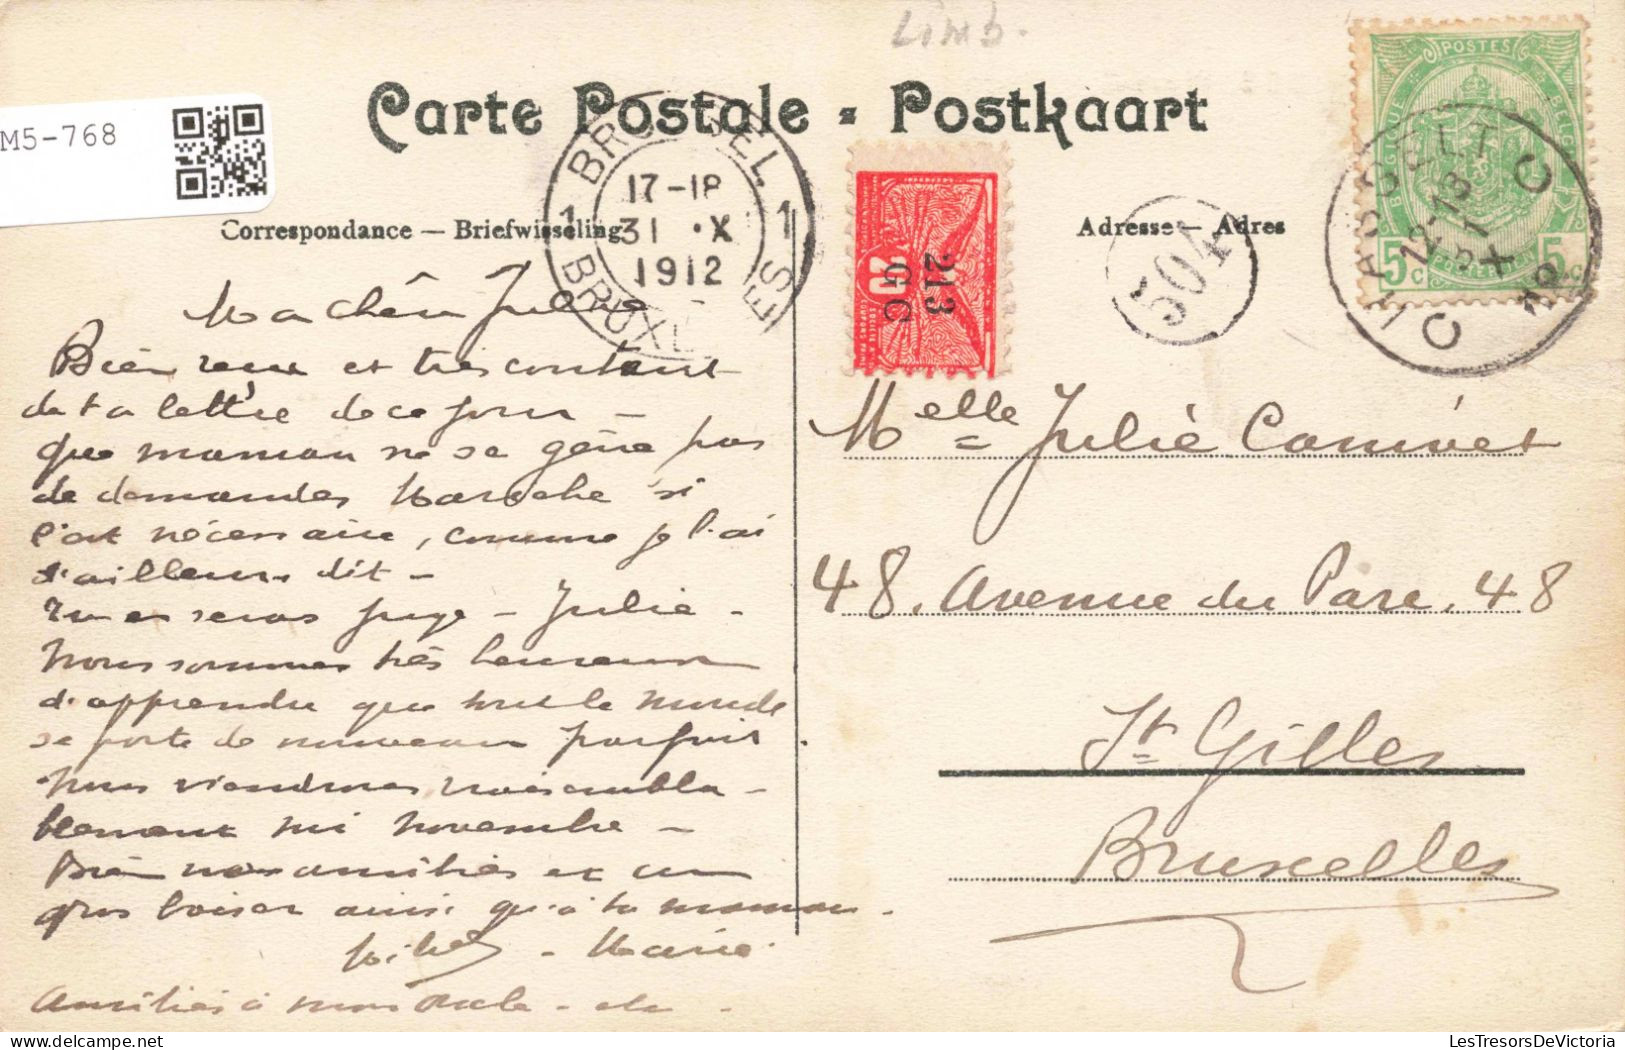 Limb.
M5-768
Carte Postale - Postkaart
Correspondance — Briefwisseling
Adresse — Adres
BRUSSEL
17-18
31 X
1912
1 1
BRUXELLES
213
GC
504
POSTES
BELGIQUE BELGIE
5c 5c
12-13
31 X
Ma chère Julie
Bien reçue et très content
de ta lettre de ce jour —
que maman ne se gêne pas
de demander si
c'est nécessaire, comme je l'ai
d'ailleurs dit —
Tu en seras juge — Julie —
Nous sommes très heureux
d'apprendre que tout le monde
se porte de nouveau parfait.
Nous viendrons vraisembla-
blement mi novembre —
Bien nos amitiés et un
gros baiser ainsi qu'à ta maman.
Marie
Amitiés à mon oncle — etc —
Melle Julie Canivet
48, Avenue du Parc, 48
St Gilles
Bruxelles
LesTresorsDeVictoria.com